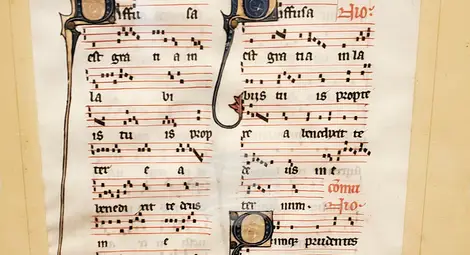 Diffu sa
est gra ti a in
la bi
is tu is prop
ter e a
benedi xit te deus
in e
Diffusa
est gra tia in la
biis tu is propte
re a benedixit te
de us in e
ter num.
Quinque prudentes